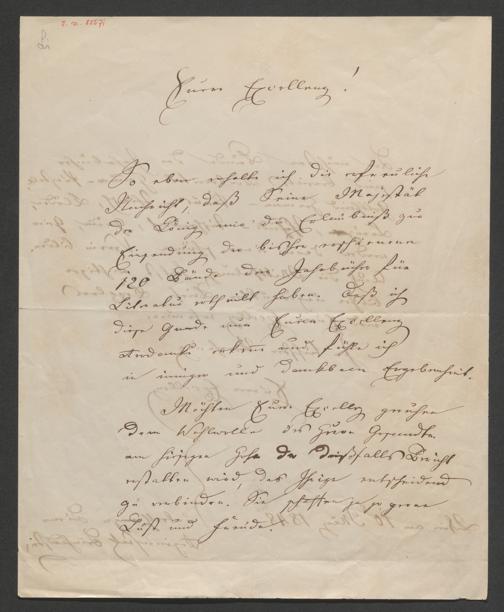 Eurer Excellenz!
So eben erhalte ich die erfreuliche
Nachricht, daß Seine Majestät
der König mir die Erlaubniß zur
Einsendung der bisher erschienenen
120 Bände der Jahrbücher für
Literatur ertheilt haben. Daß ich
diese Gnade nur Eurer Excellenz
verdanke, erkenne und fühle ich
in inniger und dankbarer Ergebenheit.
Möchten Eure Excellenz geruhen
dem Wohlwollen des Herrn Gesandten
am hiesigen Hofe der dießfalls Bericht
erstatten wird, das Ihrige entscheidend
zu verbinden. Sie schaffen ja so gerne
Lust und Freude.